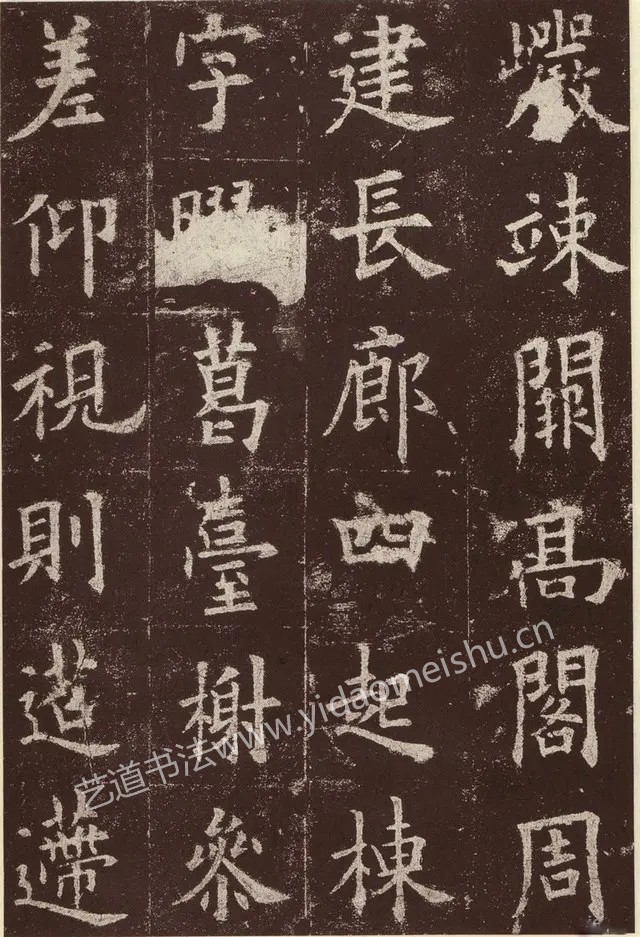 巖竦闕高閣周
建長廊四起棟
宇葛臺榭參
差仰視則迢遰
艺道书法www.yidaomeishu.cn